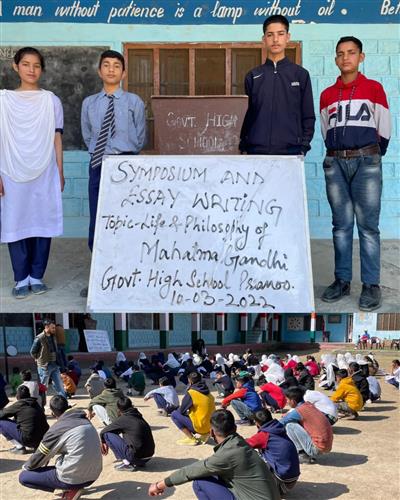 man without patience is a lamp without oil. Be
GOVT. HIGH
SCHOOL
SYMPOSIUM AND
ESSAY WRITING
Topic-Life & Philosophy of
Mahatma Gandhi
Govt. High School
10-03-2022
FILA